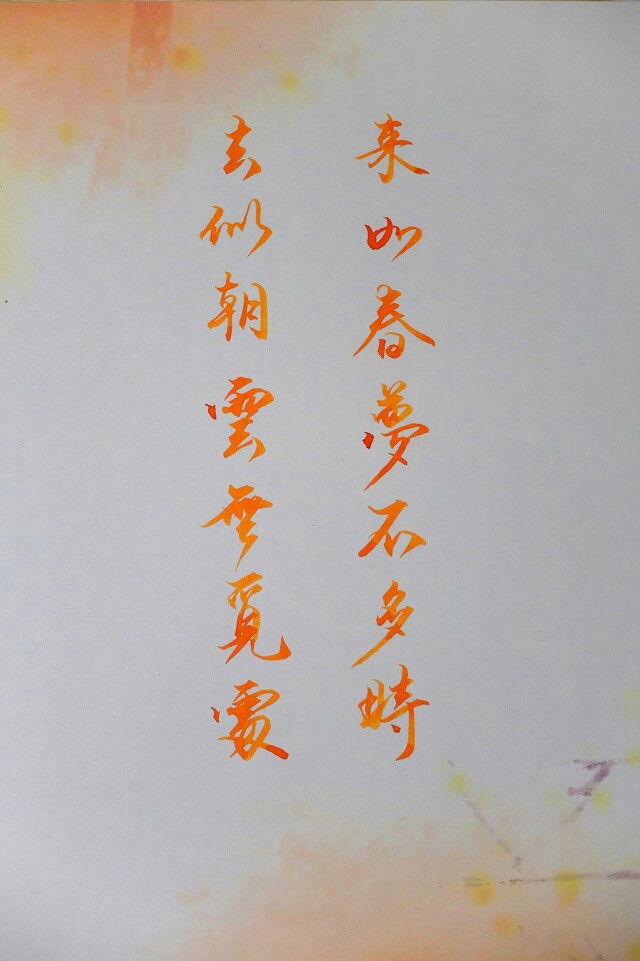 来如春夢不多時
去似朝雲無覓處